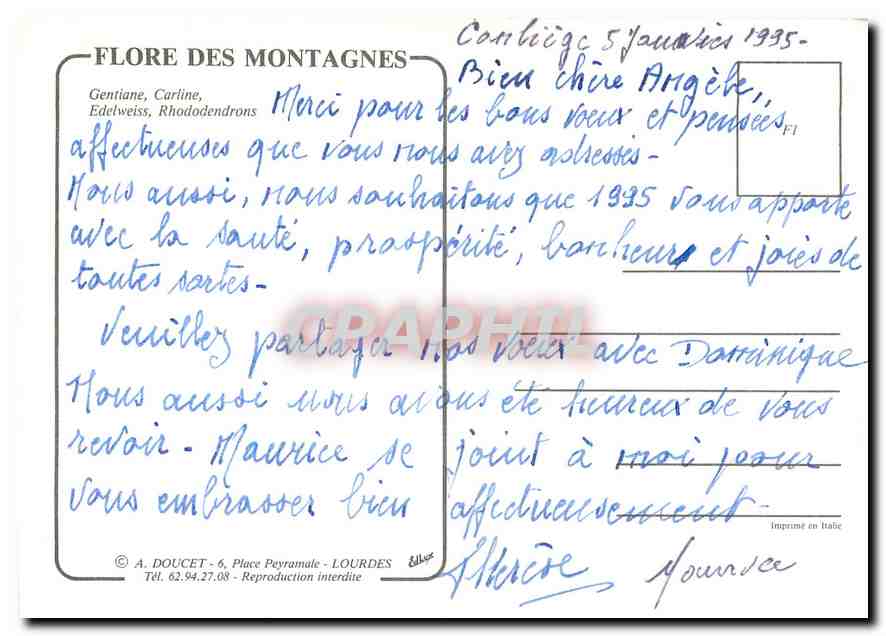 FLORE DES MONTAGNES
Gentiane, Carline,
Edelweiss, Rhododendrons
5 Janvier 1995-
Bien chère Angèle,
Merci pour les bons voeux et pensées
affectueuses que vous nous avez adressés-
Nous aussi, nous souhaitons que 1995 vous apporte
avec la santé, prospérité, bonheur et joies de
toutes sortes-
Veuillez partager nos voeux avec Dominique
Nous aussi nous avons été heureux de vous
revoir - Maurice se joint à moi pour
vous embrasser bien affectueusement-
Thérèse Maurice
F1
CPAPHIL
Imprimé en Italie
© A. DOUCET - 6, Place Peyramale - LOURDES
Tél. 62.94.27.08 - Reproduction interdite